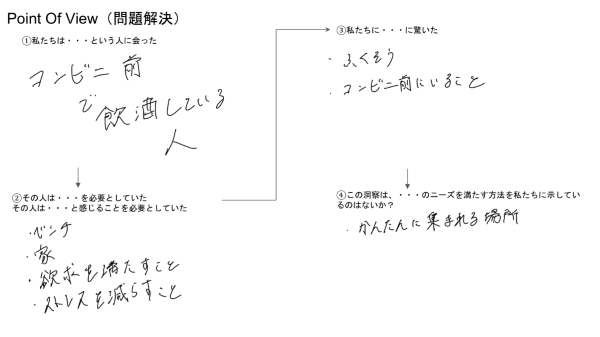 Point Of View（問題解決）
①私たちは・・・という人に会った
コンビニ前
で飲酒している
人
②その人は・・・を必要としていた
その人は・・・と感じることを必要としていた
・ベンチ
・家
・欲求を満たすこと
・ストレスを減らすこと
③私たちに・・・に驚いた
・ふくそう
・コンビニ前にいること
④この洞察は、・・・のニーズを満たす方法を私たちに示してい
るのはないか？
・かんたんに集まれる場所